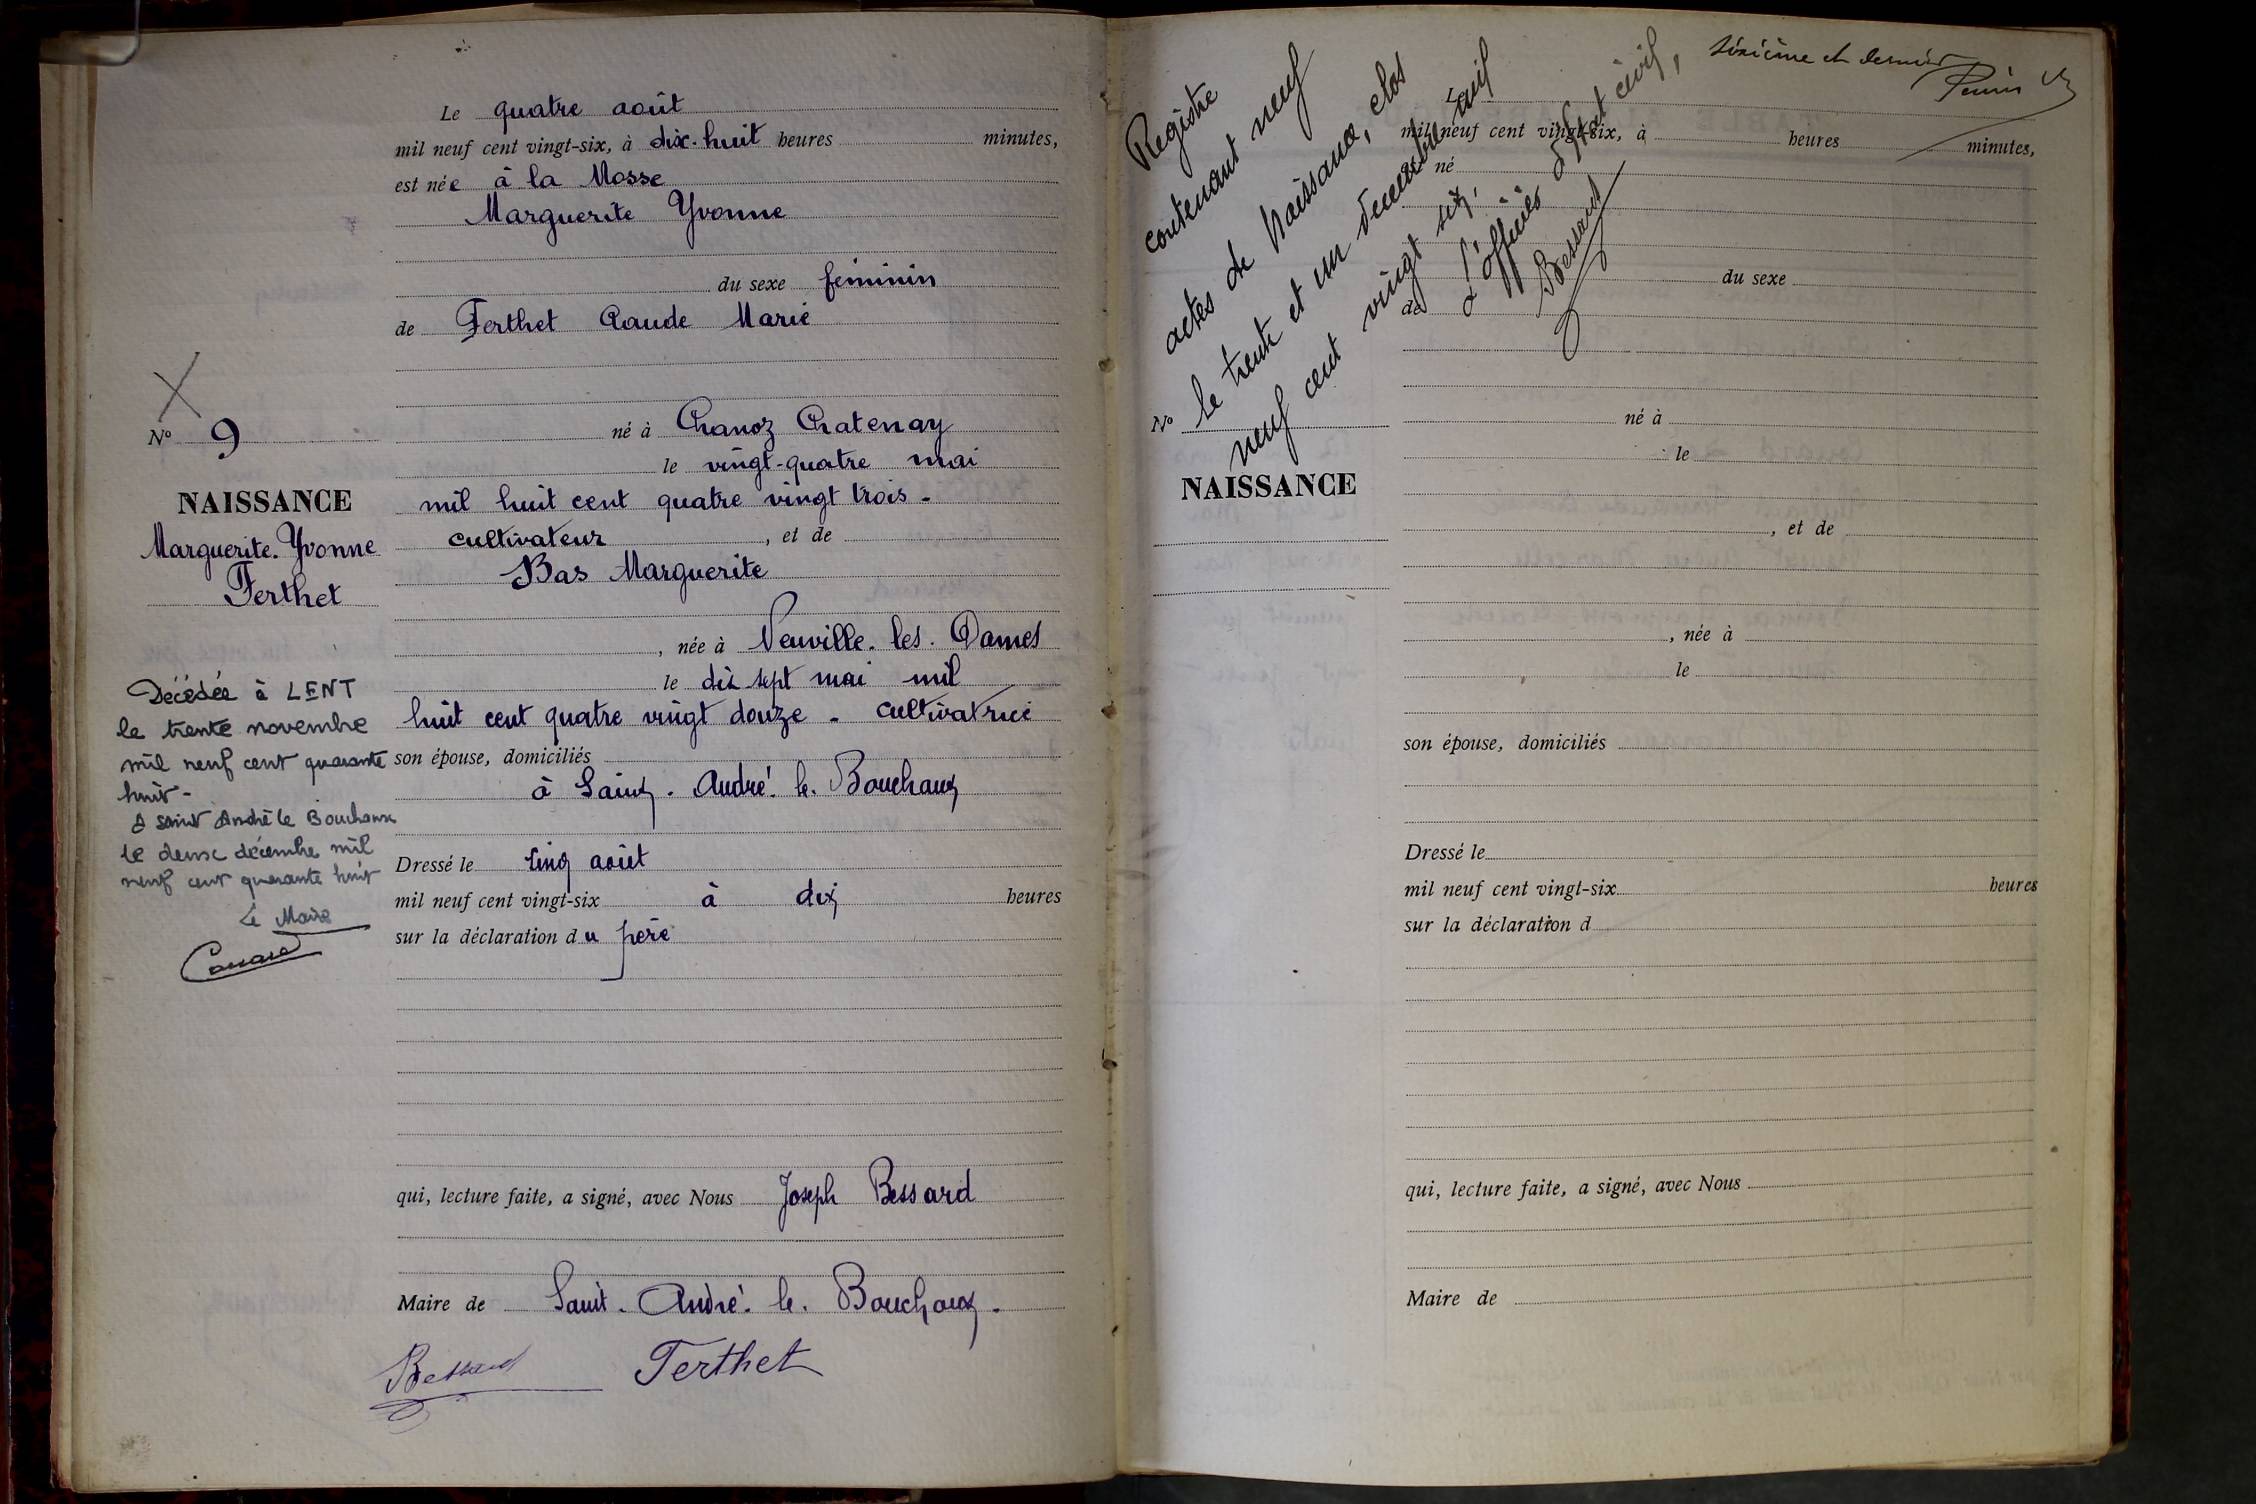 Le quatre août
mil neuf cent vingt-six, à dix-huit heures minutes,
est née à la Mosse
Marguerite Yvonne
du sexe féminin
de Ferthet Claude Marie
né à Chanoz Chatenay
le vingt-quatre mai
mil huit cent quatre vingt trois -
cultivateur, et de
Bas Marguerite
, née à Neuville. les. Dames
le dix sept mai mil
huit cent quatre vingt douze - cultivatrice
son épouse, domiciliés
à Saint. André. le. Bouchoux
Dressé le cinq août
mil neuf cent vingt-six à dix heures
sur la déclaration du père
qui, lecture faite, a signé, avec Nous Joseph Bessard
Maire de Saint. André. le. Bouchoux.
Bessard Ferthet
No 9
NAISSANCE
Marguerite. Yvonne
Ferthet
Décédée à LENT
le trente novembre
mil neuf cent quarante
huit-
A Saint André le Bouchoux
le deux décembre mil
neuf cent quarante huit
Le Maire
sixième et dernier
Registre
contenant neuf
actes de Naissance, clos
le trente et un décembre mil
neuf cent vingt six,
L'officier d'état civil,
Bessard
Le
mil neuf cent vingt-six, à heures minutes,
est né
du sexe
de
né à
le
, et de
No
NAISSANCE
, née à
le
son épouse, domiciliés
Dressé le
mil neuf cent vingt-six heures
sur la déclaration d
qui, lecture faite, a signé, avec Nous
Maire de